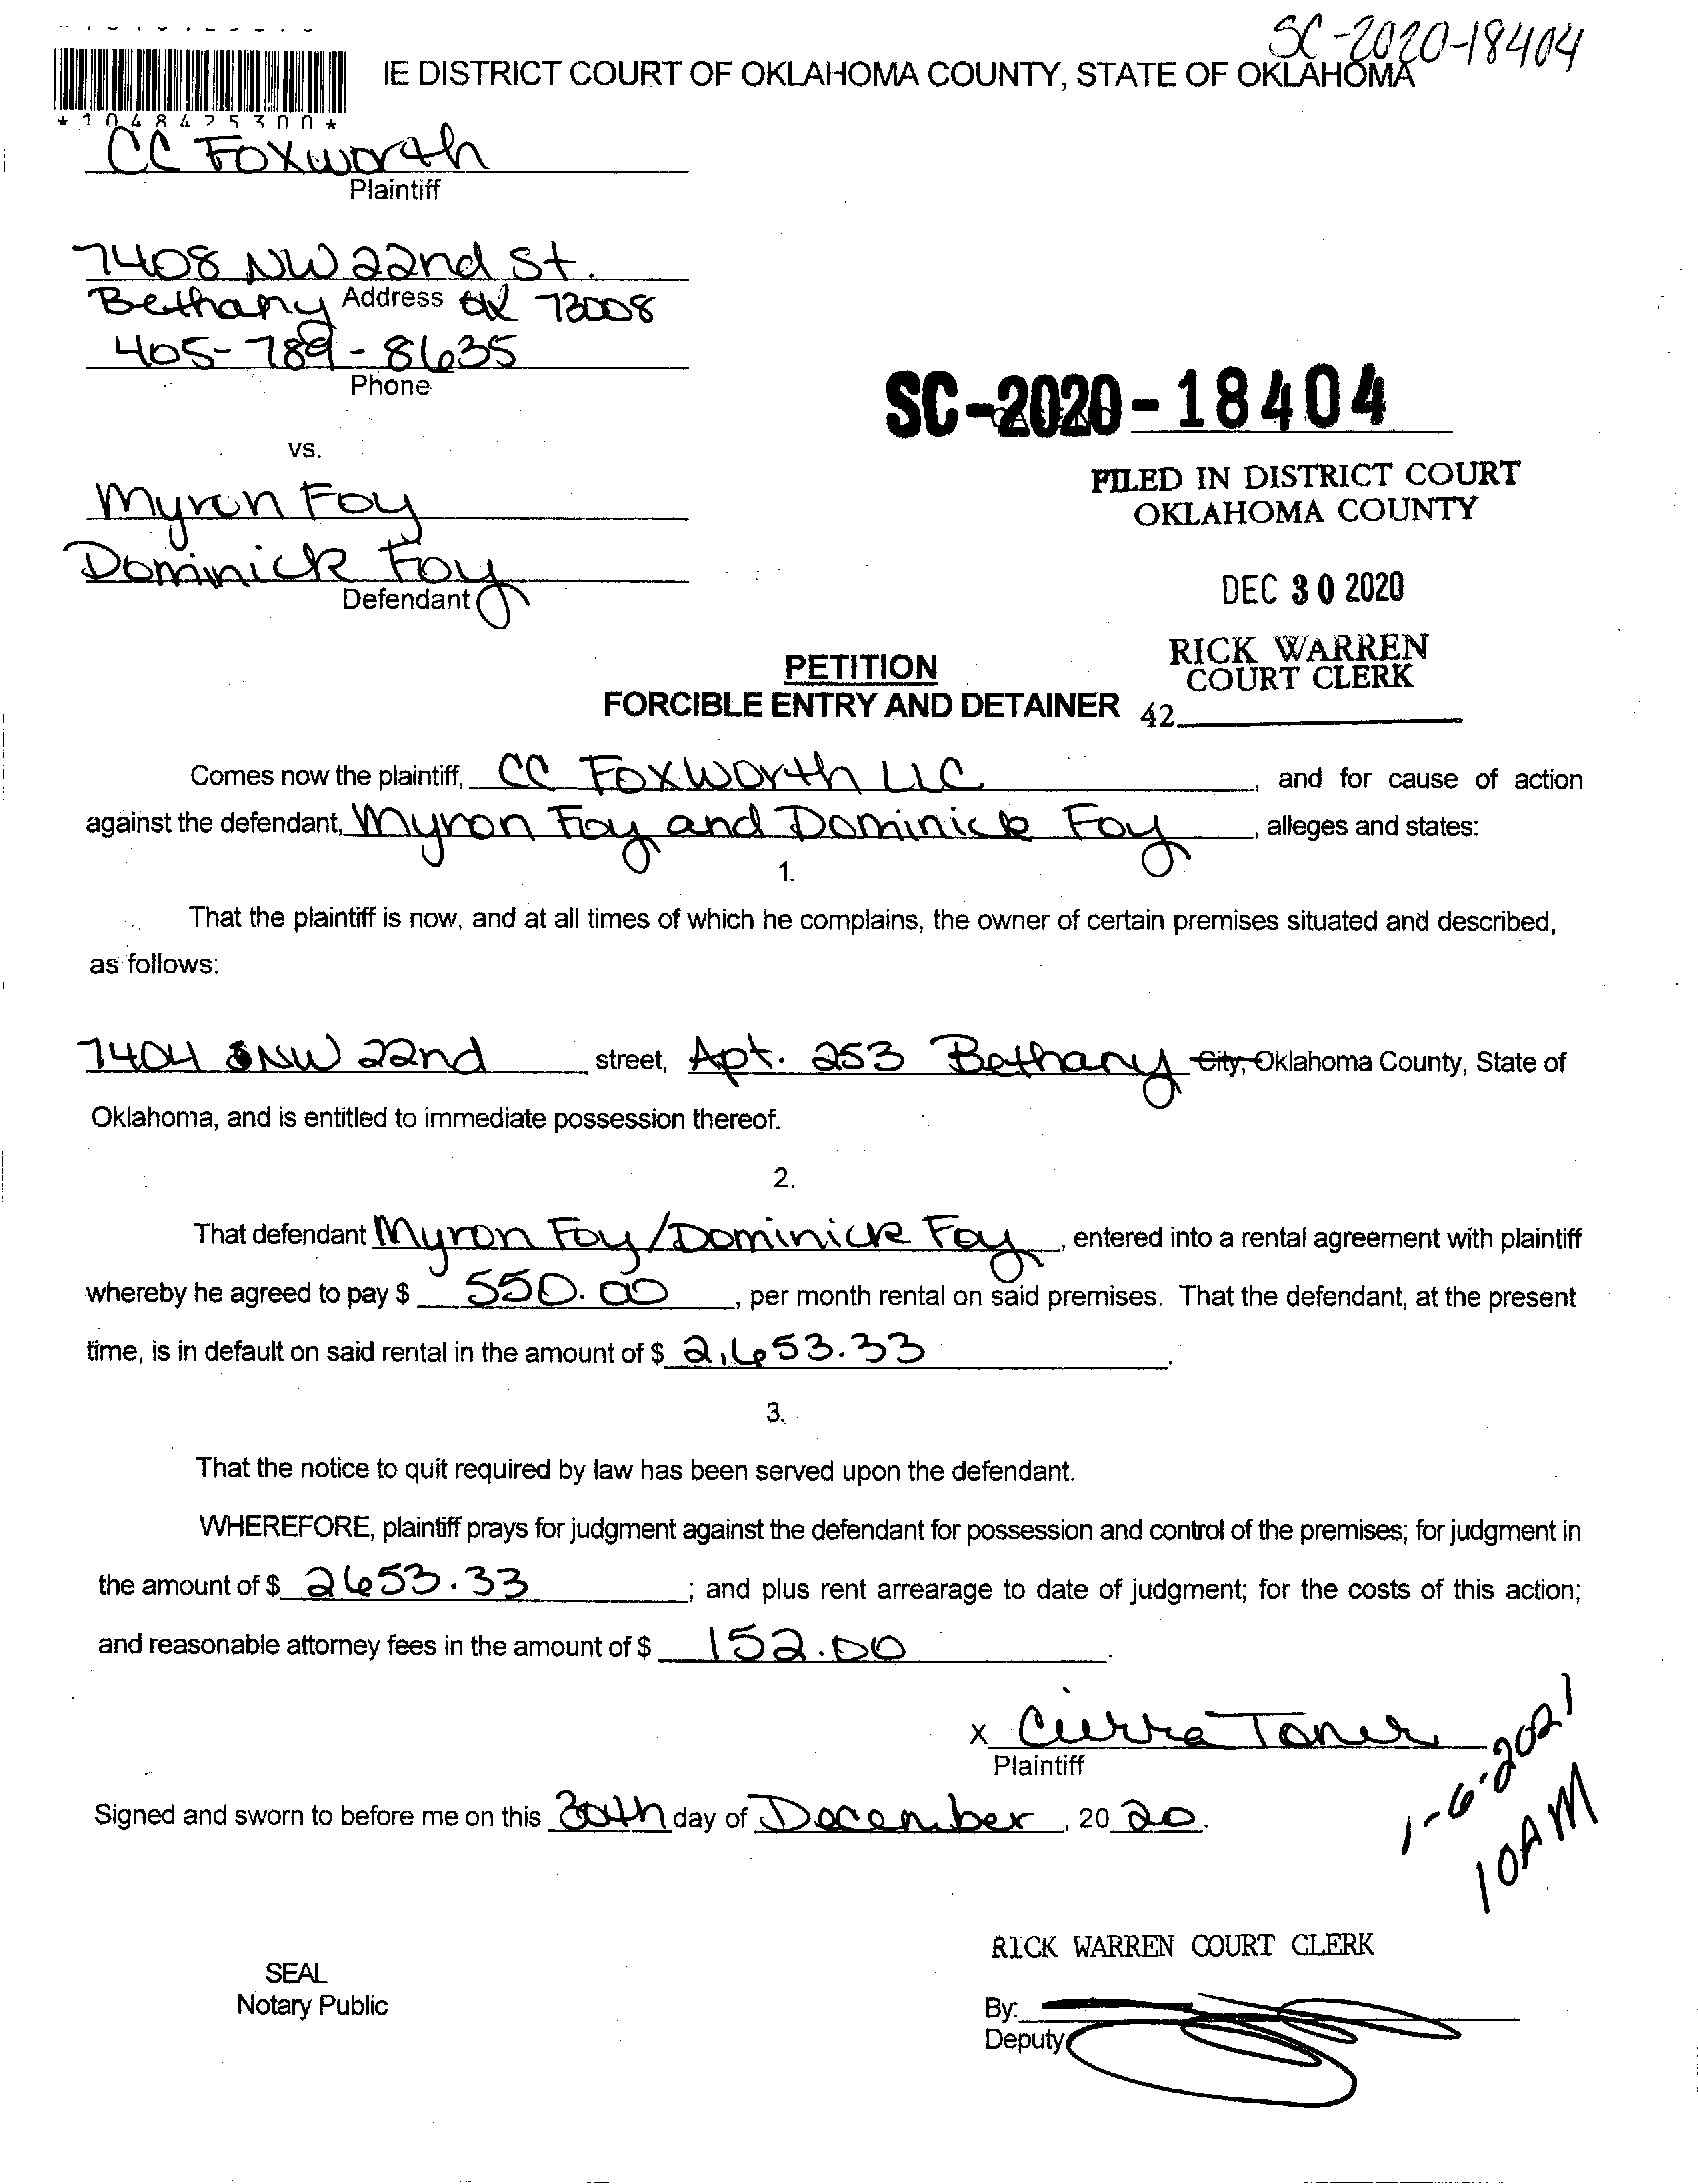 SC-2020-18404
IE DISTRICT COURT OF OKLAHOMA COUNTY, STATE OF OKLAHOMA
*1048425300*
CC Foxworth
Plaintiff
7408 NW 22nd St.
Address
Bethany OK 73008
405-789-8635
Phone
SC-2020-18404
vs.
FILED IN DISTRICT COURT
OKLAHOMA COUNTY
Myron Foy
Dominick Foy
Defendant
DEC 30 2020
RICK WARREN
COURT CLERK
42
PETITION
FORCIBLE ENTRY AND DETAINER
Comes now the plaintiff, CC Foxworth LLC, and for cause of action
against the defendant, Myron Foy and Dominick Foy, alleges and states:
1.
That the plaintiff is now, and at all times of which he complains, the owner of certain premises situated and described,
as follows:
7404 NW 22nd street, Apt. 253 Bethany City, Oklahoma County, State of
Oklahoma, and is entitled to immediate possession thereof.
2.
That defendant Myron Foy/Dominick Foy, entered into a rental agreement with plaintiff
whereby he agreed to pay $ 550.00, per month rental on said premises. That the defendant, at the present
time, is in default on said rental in the amount of $ 2,653.33.
3.
That the notice to quit required by law has been served upon the defendant.
WHEREFORE, plaintiff prays for judgment against the defendant for possession and control of the premises; for judgment in
the amount of $ 2653.33; and plus rent arrearage to date of judgment; for the costs of this action;
and reasonable attorney fees in the amount of $ 152.00.
x Cierra Toner
Plaintiff
1-6-2021
10AM
Signed and sworn to before me on this 30th day of December, 20 20.
RICK WARREN COURT CLERK
SEAL
Notary Public
By:
Deputy